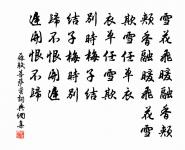 雪花飛暖融香頰
頰香融暖飛花雪
欺雪任單衣
衣單任雪欺
別時梅子結
結子梅時別
歸不恨開遲
遲開恨不歸
蘇軾菩薩蠻詞典網集